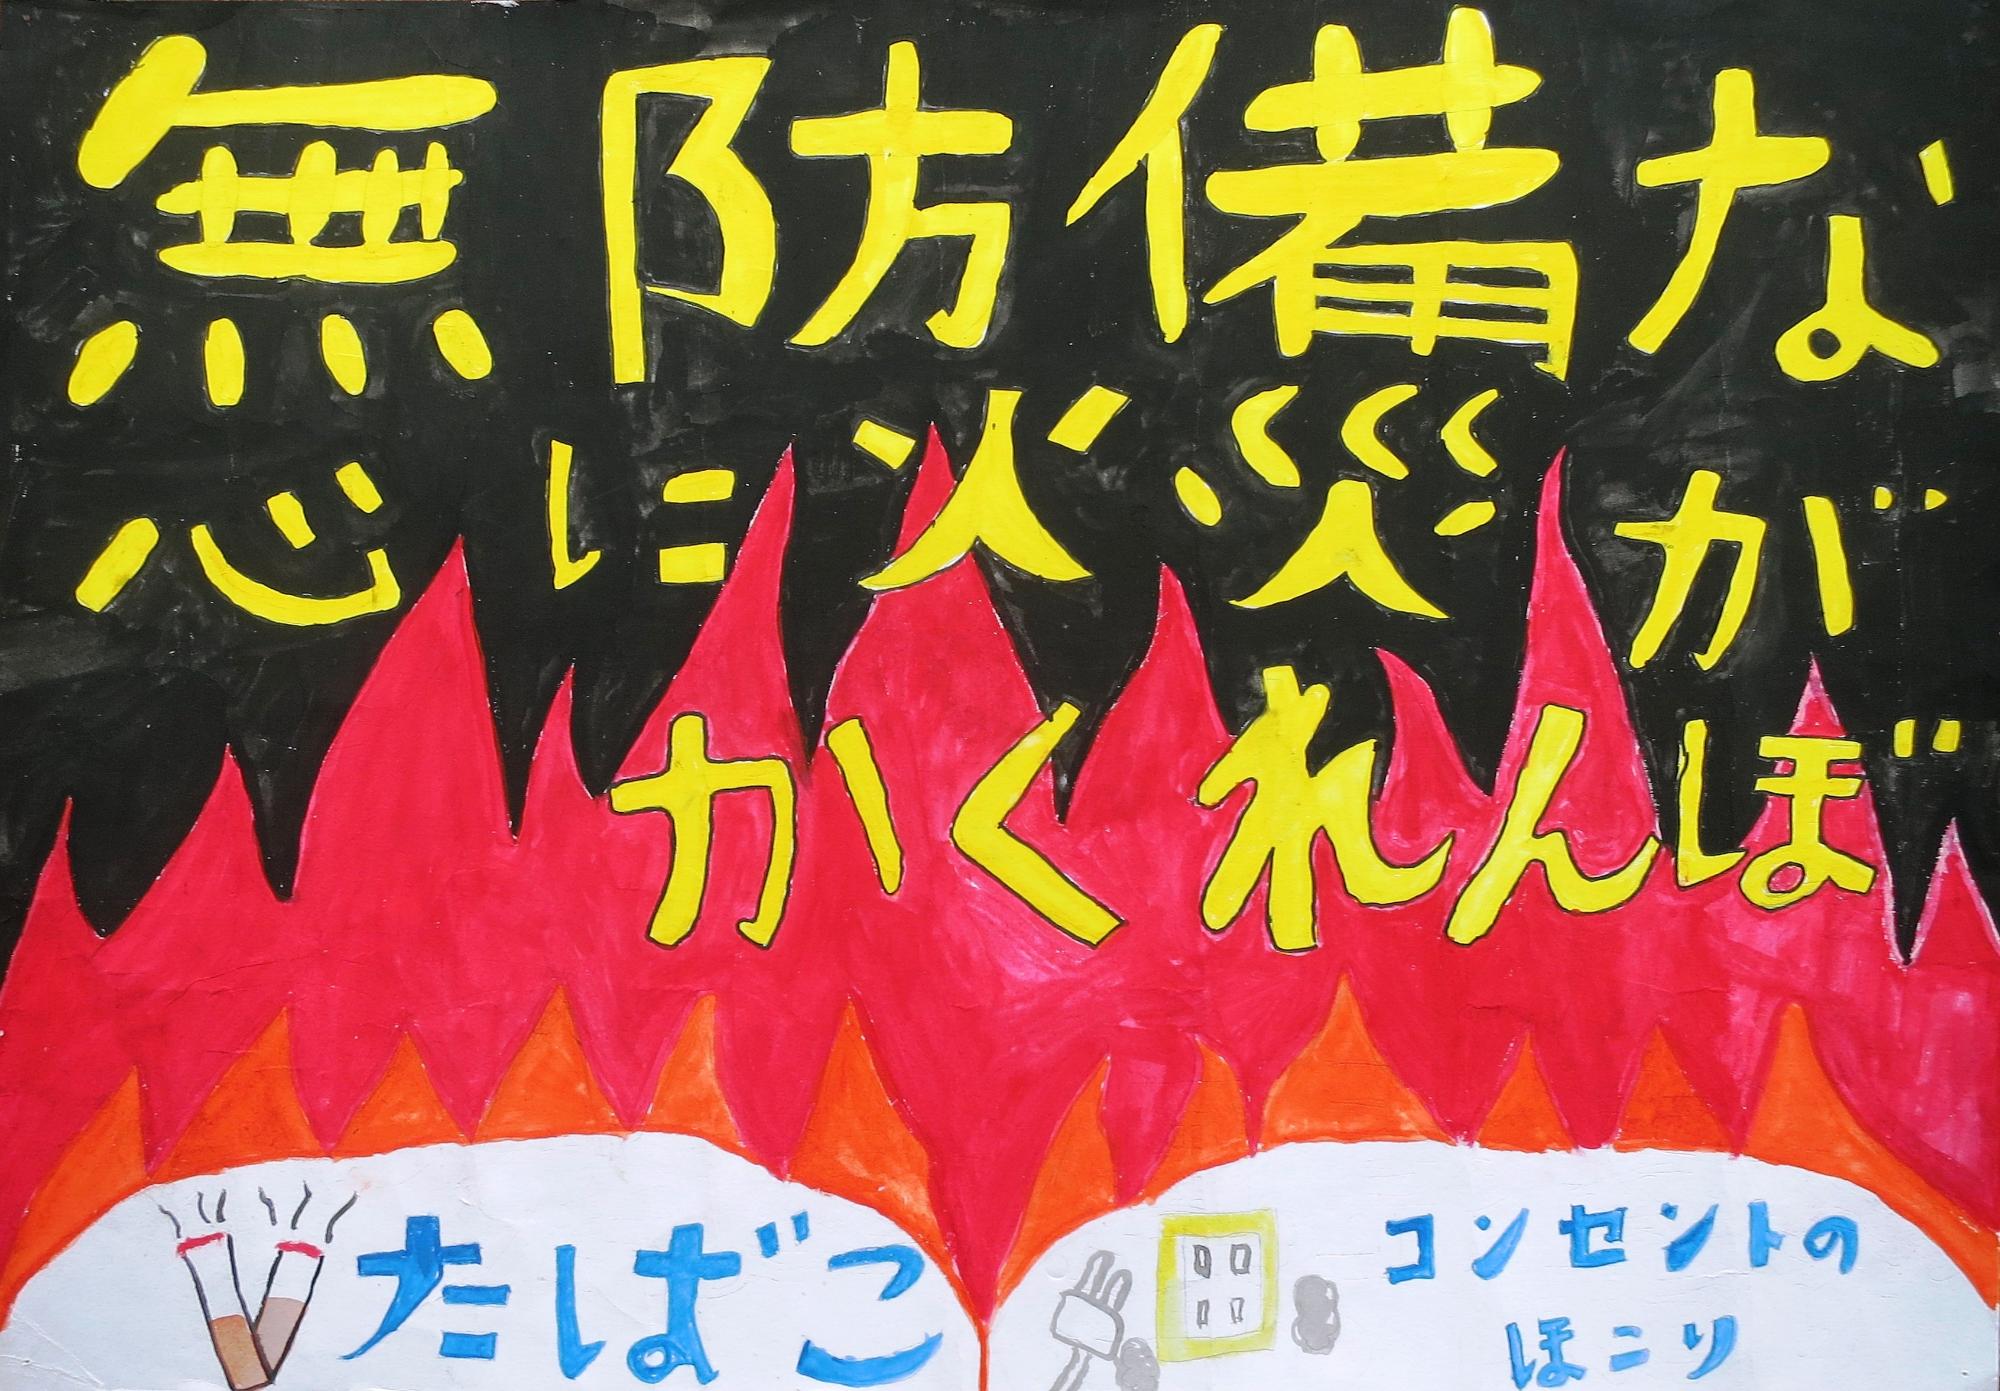 無防備な
心に火災が
かくれんぼ
たばこ
コンセントの
ほこり